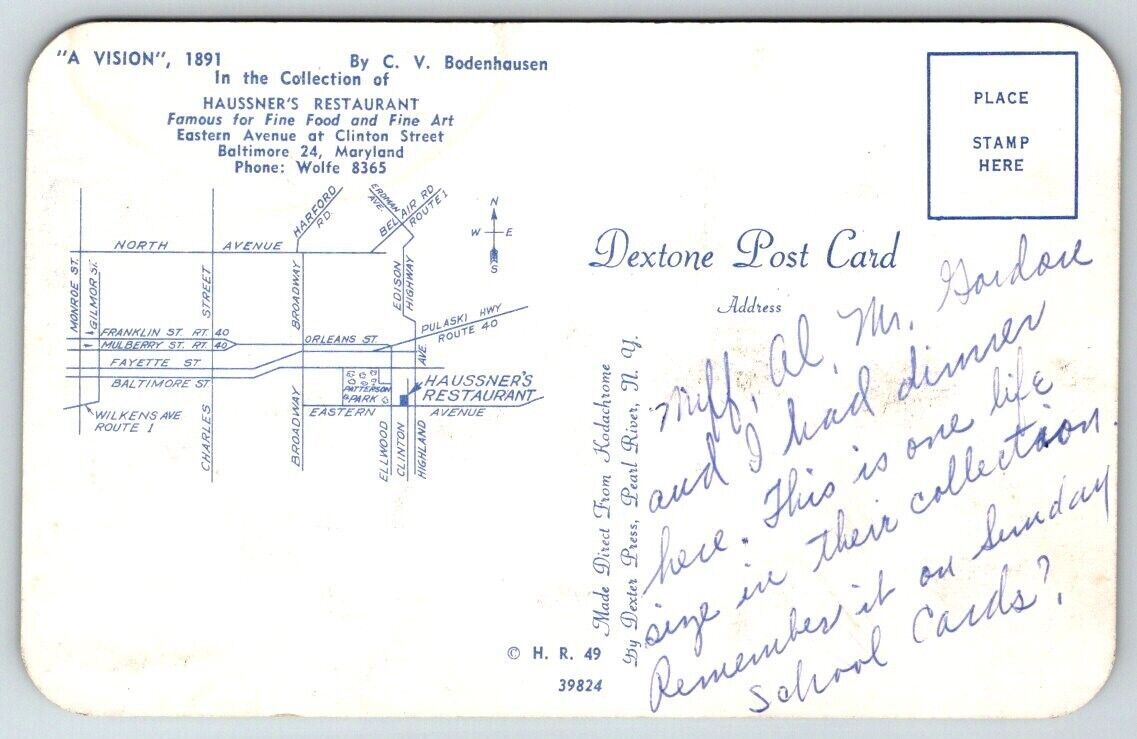 "A VISION", 1891 By C. V. Bodenhausen
In the Collection of
HAUSSNER'S RESTAURANT
Famous for Fine Food and Fine Art
Eastern Avenue at Clinton Street
Baltimore 24, Maryland
Phone: Wolfe 8365
PLACE
STAMP
HERE
HARFORD
RD.
ERDMAN
AVE.
BEL AIR RD
ROUTE 1
N
W E
S
NORTH AVENUE
MONROE ST.
GILMOR ST.
STREET
BROADWAY
EDISON
HIGHWAY
PULASKI HWY
ROUTE 40
FRANKLIN ST. RT. 40
MULBERRY ST. RT 40
ORLEANS ST.
FAYETTE ST.
AVE.
BALTIMORE ST.
PATTERSON
PARK
HAUSSNER'S
RESTAURANT
EASTERN AVENUE
WILKENS AVE
ROUTE 1
CHARLES
BROADWAY
ELLWOOD
CLINTON
HIGHLAND
© H. R. 49
39824
Made Direct From Kodachrome
By Dexter Press, Pearl River, N. Y.
Dextone Post Card
Address
Miff, Al, Mr. Gordon
and I had dinner
here. This is one life
size in their collection.
Remember it on Sunday
School Cards?